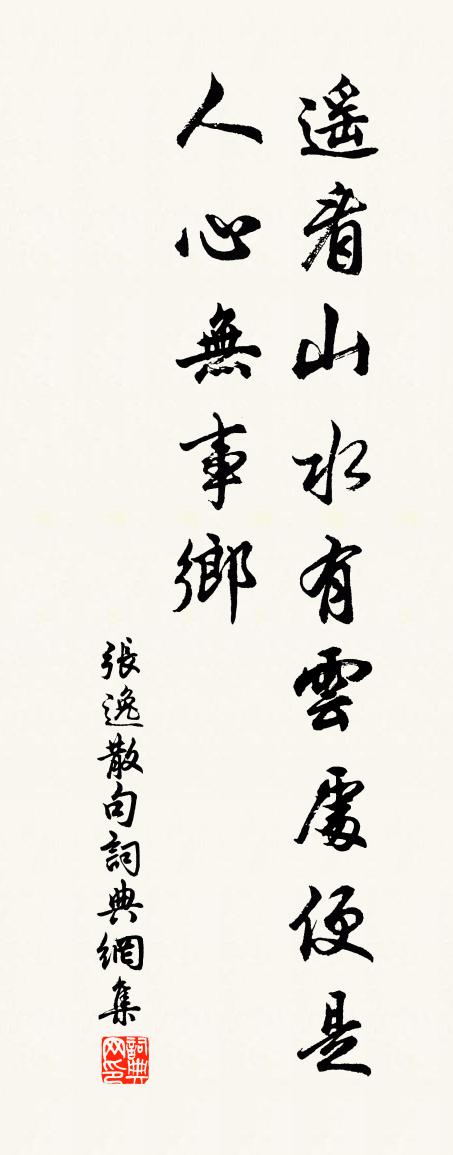 遥看山水有雲處便是
人心無事鄉
張逸散句詞典網集
詞典网印